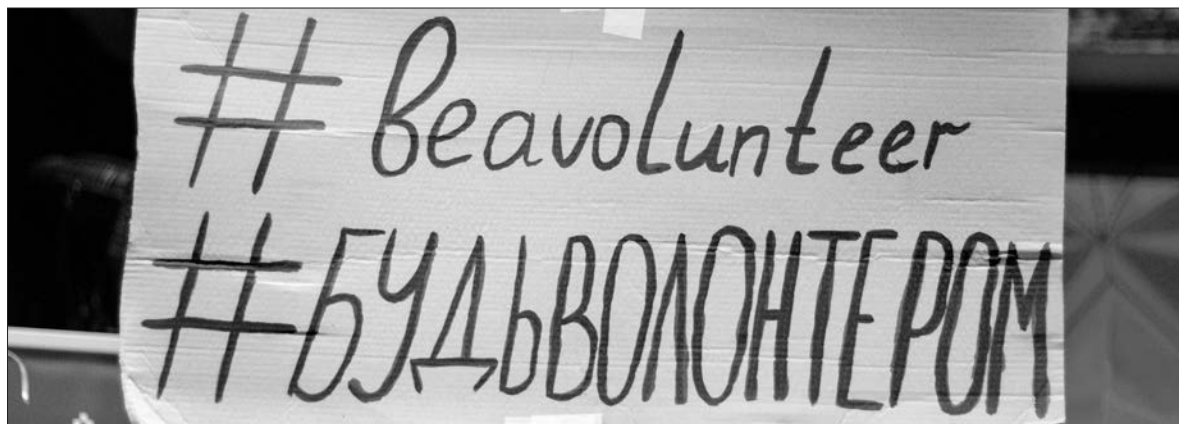 #beavolunteer
#БУДЬВОЛОНТЕРОМ